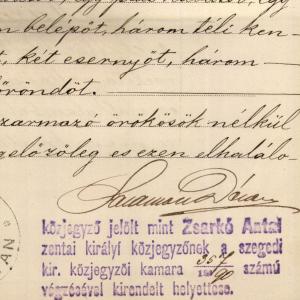 n belépőt, három téli ken-
t, két esernyőt, három
őröndöt.
zármazó örökösök nélkül
gelőzőleg es ezen elhalálo-
közjegyző jelölt mint Zsarkó Antal
zentai királyi közjegyzőnek a szegedi
kir. közjegyzői kamara számú
végzésével kirendelt helyettese.
AN